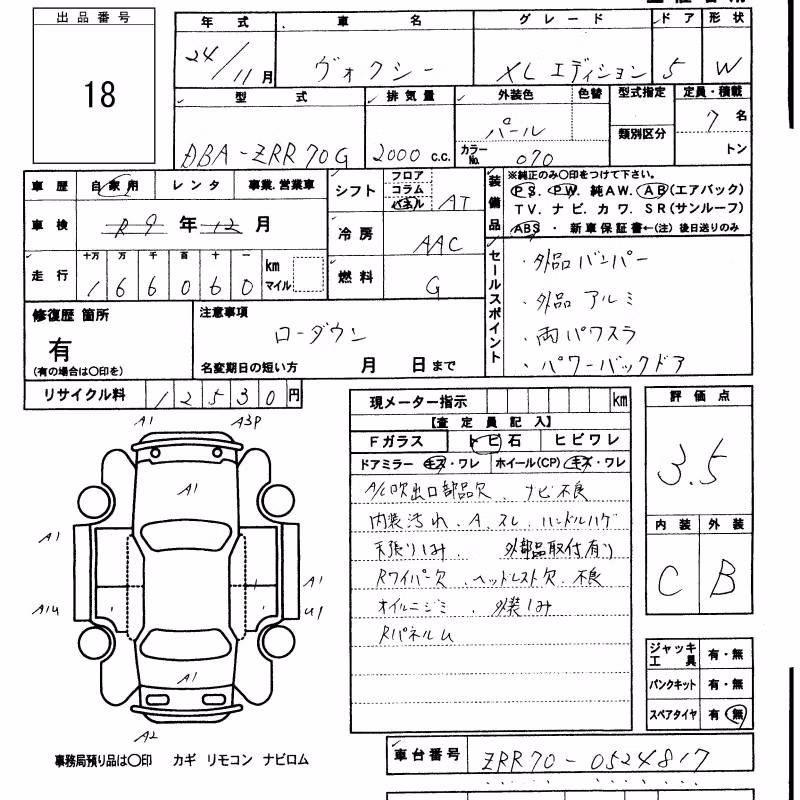 出品番号
18
年式 車名 グレード ドア 形状
24/11月 ヴォクシー XLエディション 5 W
型式 排気量 外装色 色替 型式指定 定員・積載
DBA-ZRR70G 2000 c.c. パール 7名
カラーNo. 070 類別区分 トン
車歴 自家用 レンタ 事業.営業車
車検 R9年12月
走行 十万 万 千 百 十 一 km マイル
166060
シフト フロア コラム パネル AT
冷房 AAC
燃料 G
装備品 ※純正のみ○印をつけて下さい。
PS. PW. 純AW. AB(エアバック)
TV. ナビ. カワ. SR(サンルーフ)
ABS ・ 新車保証書←(注) 後日送りのみ
セールスポイント
・外品バンパー
・外品アルミ
・両パワスラ
・パワーバックドア
修復歴 箇所
有
(有の場合は○印を)
注意事項
ローダウン
名変期日の短い方 月 日まで
リサイクル料 12530円
現メーター指示 km
【査定員記入】
Fガラス トビ石 ヒビワレ
ドアミラー キズ・ワレ ホイール(CP) キズ・ワレ
A/C吹出口部品欠 、ナビ不良
内装汚れ、A、スレ、ハンドルハゲ
天張りしみ、 外部品取付有り
Rワイパー欠 、ヘッドレスト欠、不良
オイルニジミ、 外装しみ
Rパネルム
評価点
3.5
内装 外装
C B
ジャッキ工具 有・無
パンクキット 有・無
スペアタイヤ 有 無
A1 A3P
A1
A1
A1
A1U U1
A1
A2
事務局預り品は○印 カギ リモコン ナビロム
車台番号 ZRR70-0524817